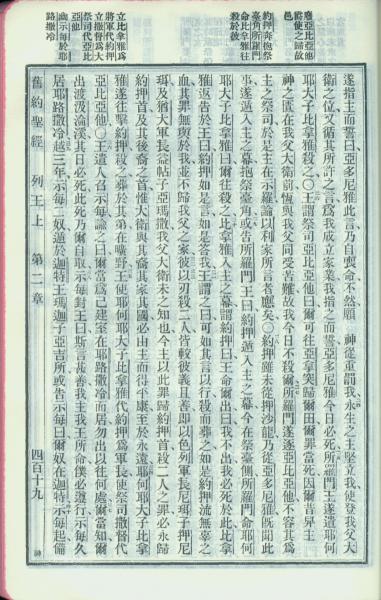 廢亞比亞他
爵使之歸故
邑
約押奔抱祭
臺角所羅門
命比拿雅往
殺於彼
立比拿雅為
將軍代約押
立撒督為大
祭司代亞比
幽示每於耶
路撒冷
遂指主而誓曰亞多尼雅此言乃自喪命不然願　神從重罰我永生之主堅立我使登我父大
衛之位又循其所許之言為我成立家業我指之而誓亞多尼雅今日必死所羅門王遂遣耶何
耶大子比拿雅殺之〇王謂祭司亞比亞他曰爾可往亞拿突歸爾田爾罪當死因爾昔舁主
神之匱在我父大衛前恆與我父同受苦難故我今日不殺爾所羅門遂逐亞比亞他不容其為
主之祭司於是主在示羅論以利家所言者應矣〇約押雖未從押沙龍乃從亞多尼雅既聞此
事遂遁入主之幕抱祭臺角或告所羅門王曰約押遁入主之幕今在祭臺側所羅門命耶何
耶大子比拿雅曰爾往殺之比拿雅入主之幕謂約押曰王命爾出曰我不出我必死於此比拿
雅返告於王曰約押如是言如是答我王謂之曰可如其言以行殺而葬之如是約押流無辜之
血其罪無與於我並不歸我父之家彼以刃殺二人皆較彼義且善即以色列軍長尼珥子押尼
珥及猶大軍長益帖子亞瑪撒我父大衛未之知也今主以此罪歸約押首殺二人之罪必永歸
約押首及其後裔之首惟大衛與其裔其家其國必由主而得平康至於永遠耶何耶大子比拿
雅遂往擊約押殺之葬於其第在曠野王使耶何耶大子比拿雅代約押為軍長使祭司撒督代
亞比亞他〇王遣人召示每諭之曰爾當為己建室在耶路撒冷而居勿出以往何處爾當知爾
出渡汲淪溪其日必死此死乃爾自取示每對王曰斯言甚善我主我王所命僕必遵行示每久
居耶路撒冷越三年示每二奴遁於迦特王瑪迦子亞吉所或告示每曰爾奴在迦特示每起備
舊約聖經　列王上　第二章　四百十九